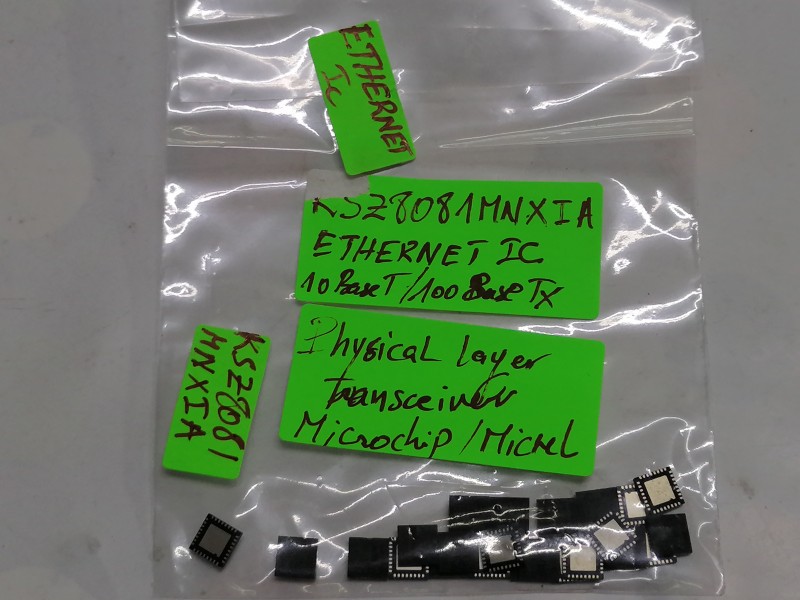 ETHERNET
IC
KSZ8081MNXIA
ETHERNET IC
10BaseT/100BaseTx
Physical layer
Transceiver
Microchip/Micrel
KSZ8081
MNXIA